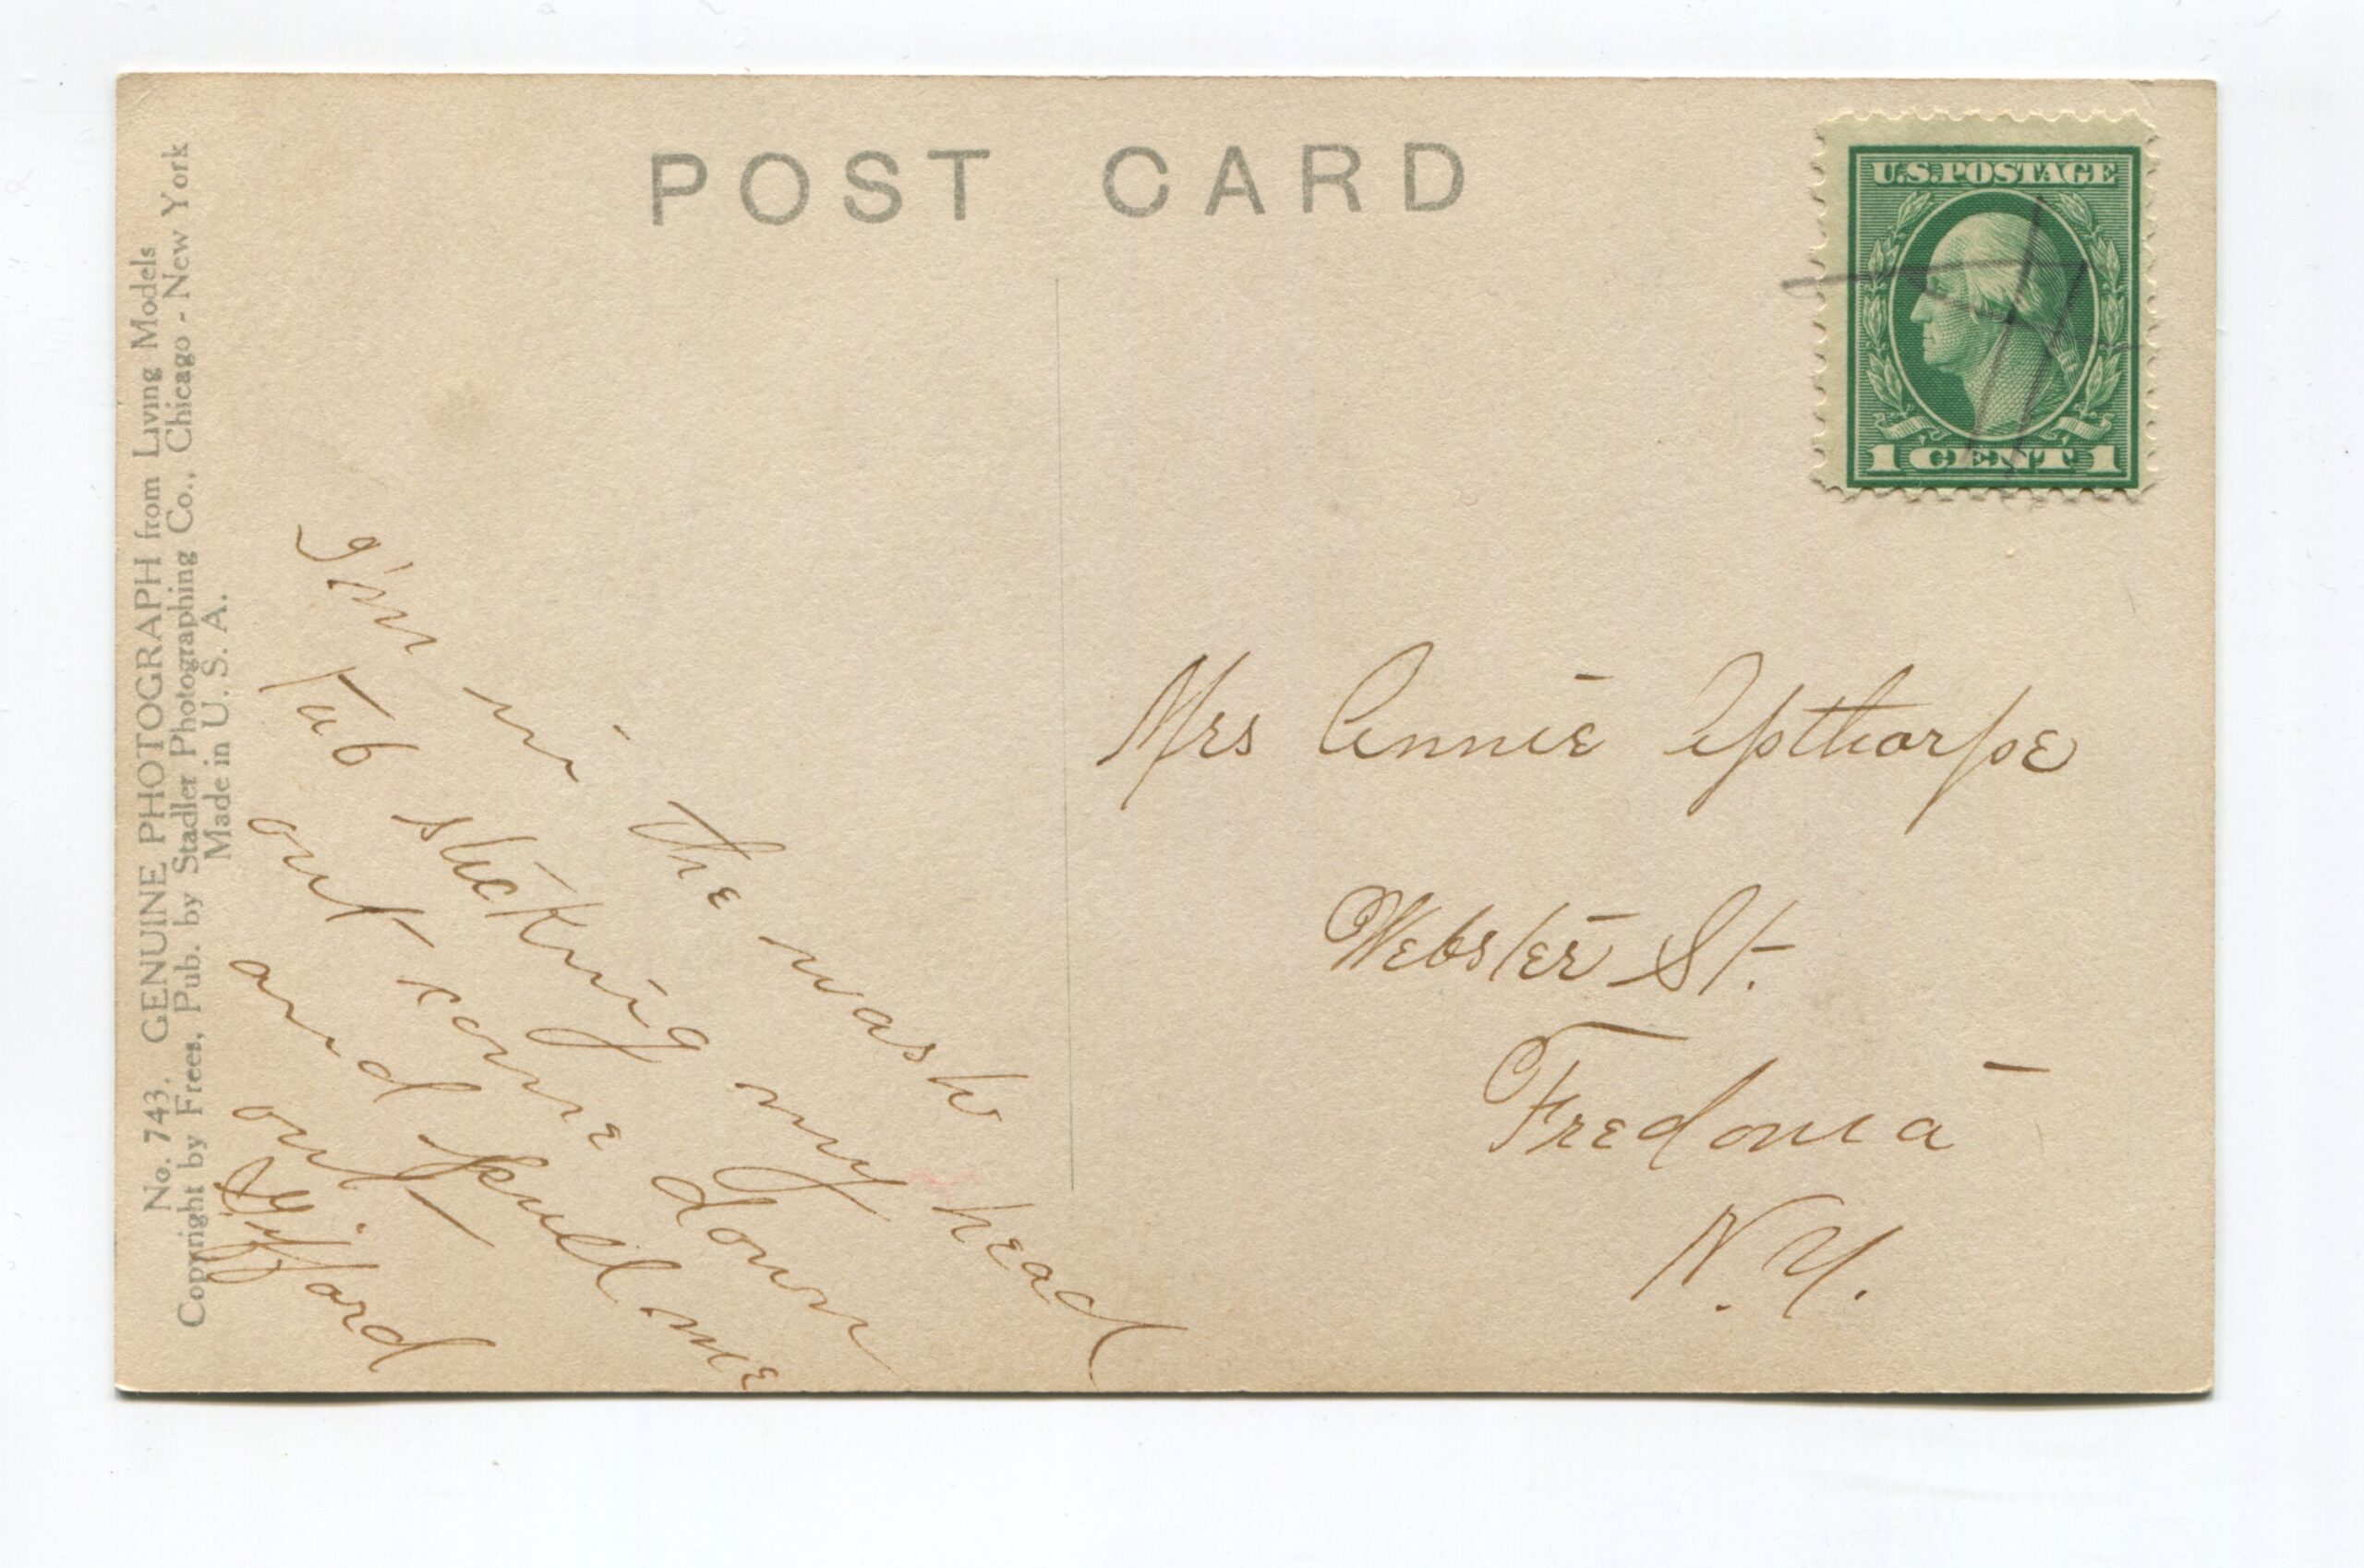 POST CARD
U.S. POSTAGE
1 CENT 1
No. 743. GENUINE PHOTOGRAPH from Living Models
Copyright by Frees, Pub. by Stadler Photographing Co., Chicago - New York
Made in U. S. A.
I'm in the wash
tub sticking my head
out come down
and pull me
out
Gifford
Mrs Annie Apthorpe
Webster St.
Fredonia
N.Y.